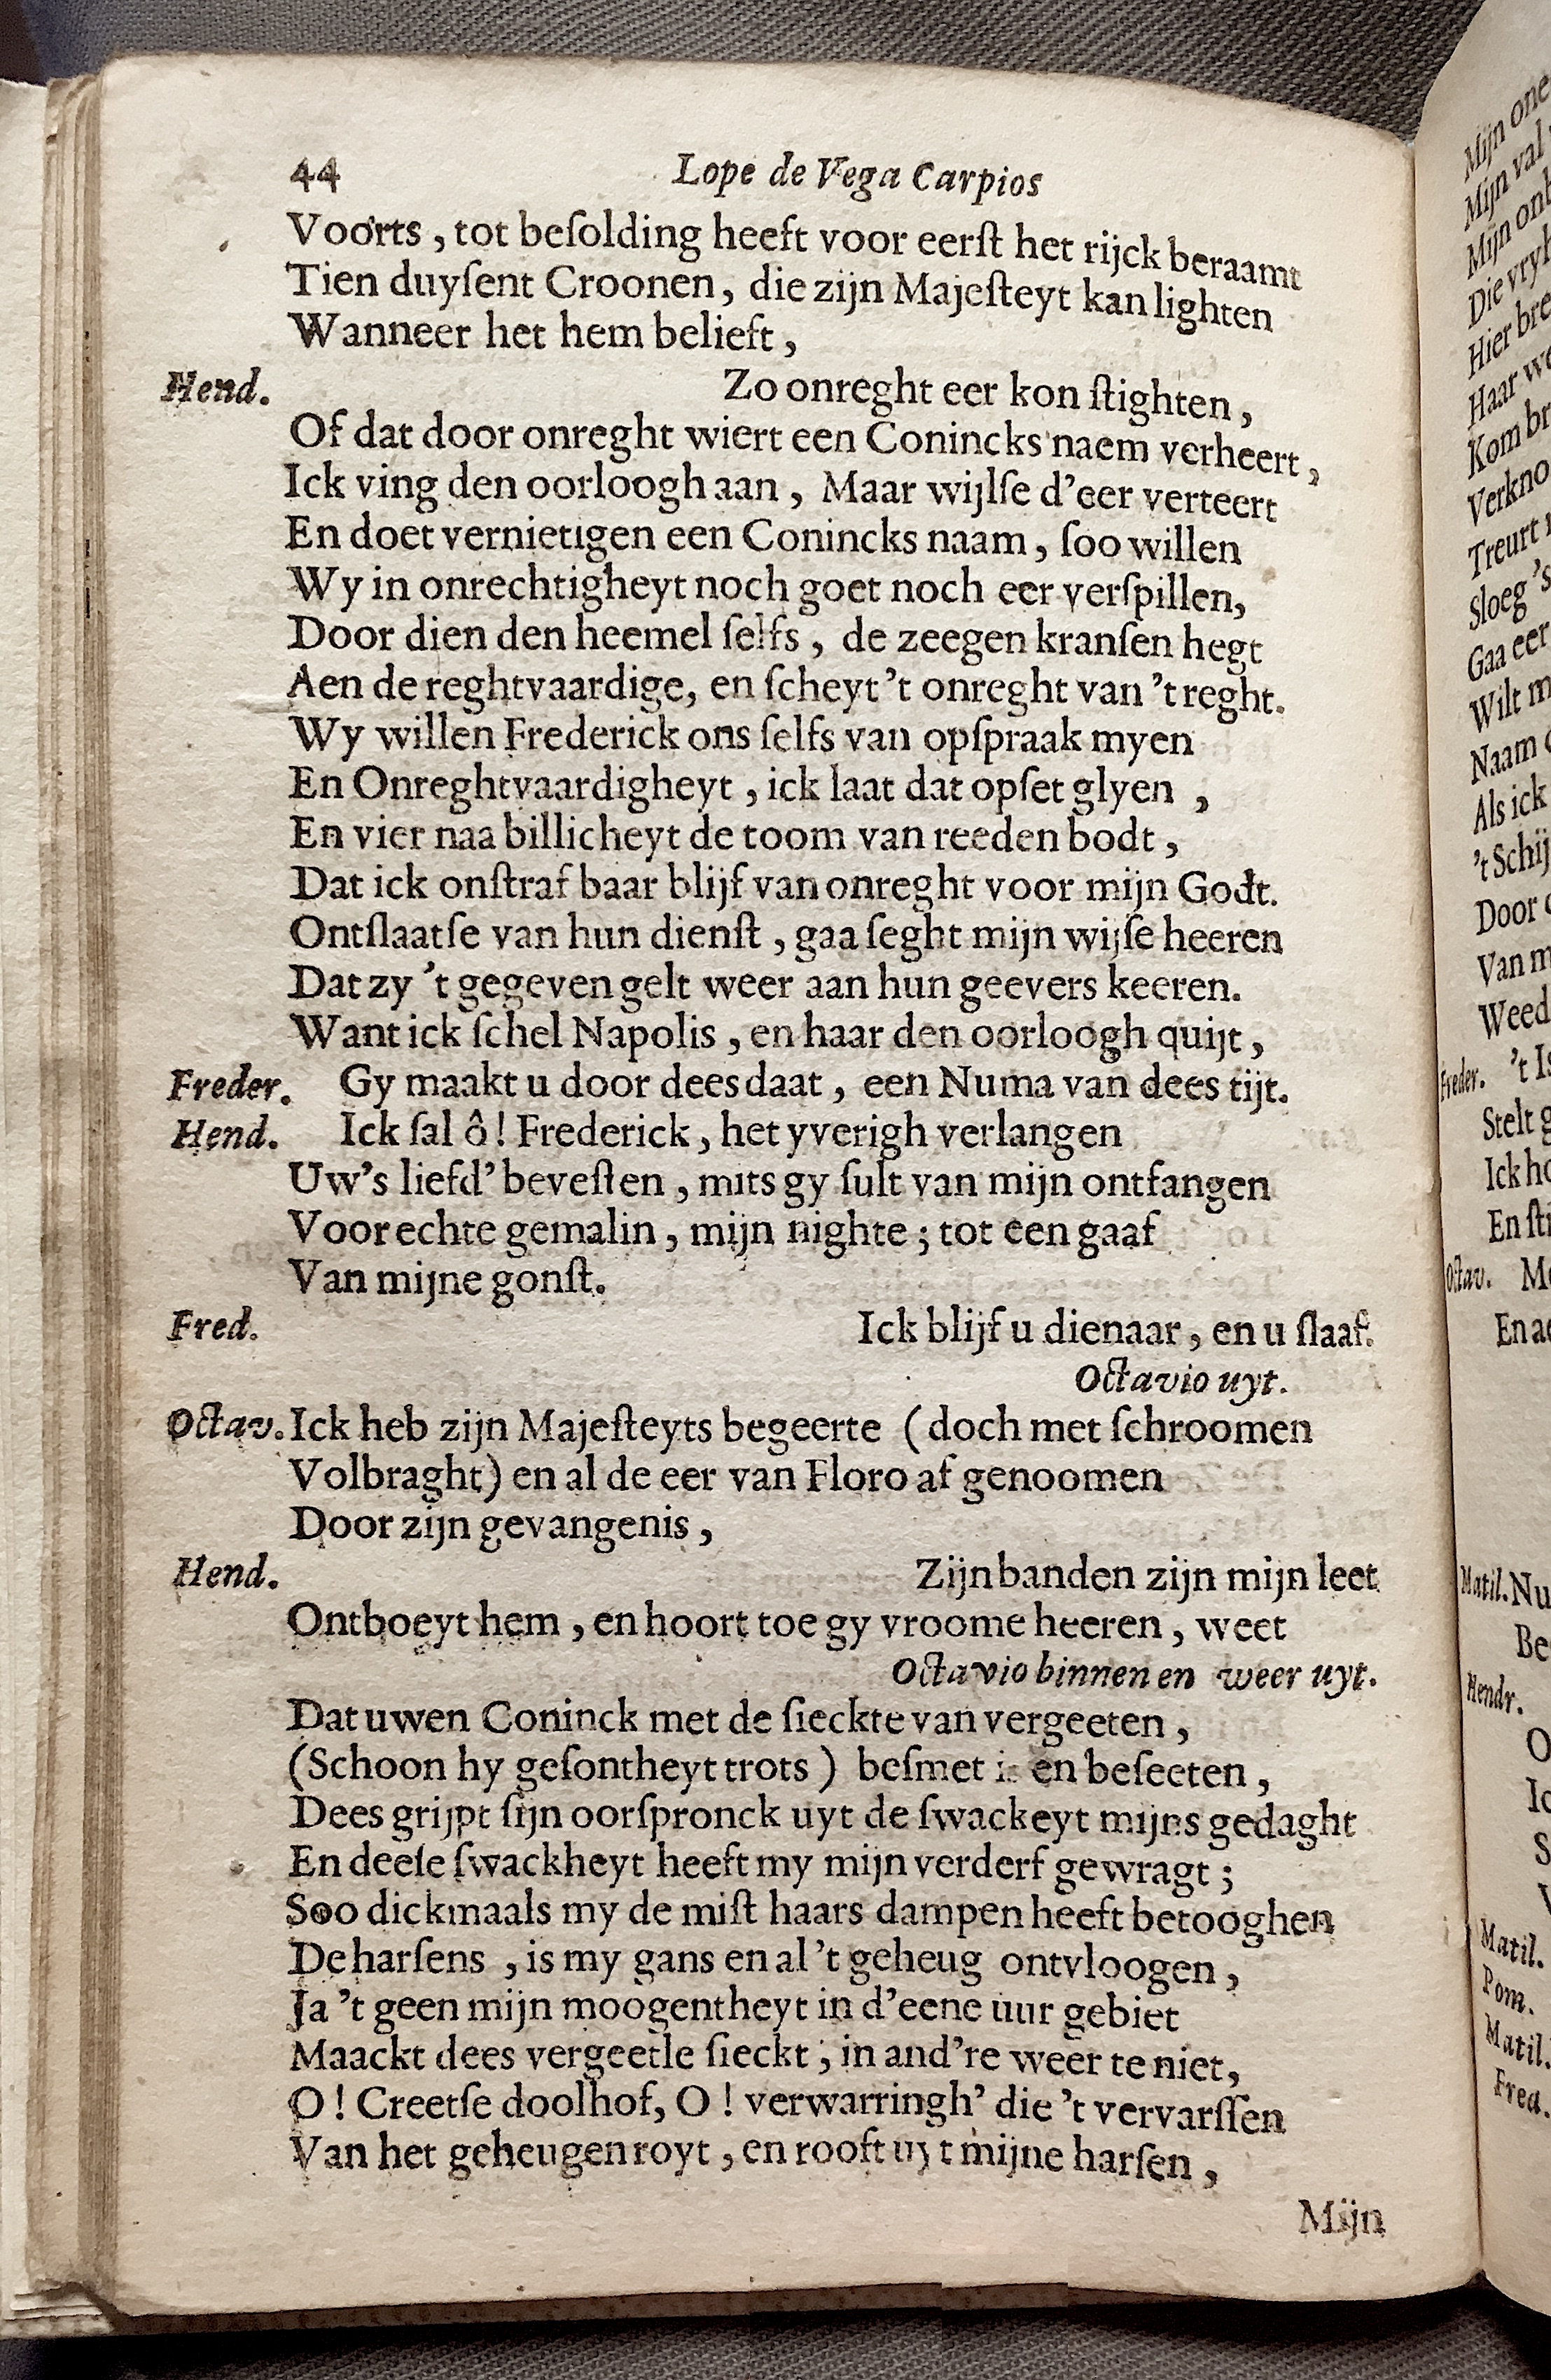 44 Lope de Vega Carpios
Voorts, tot beſolding heeft voor eerſt het rijck beraamt
Tien duyſent Croonen, die zijn Majeſteyt kan lighten
Wanneer het hem belieft,
Hend. Zo onreght eer kon ſtighten,
Of dat door onreght wiert een Conincks naem verheert,
Ick ving den oorloogh aan, Maar wijlſe d'eer verteert
En doet vernietigen een Conincks naam, ſoo willen
Wy in onrechtigheyt noch goet noch eer verſpillen,
Door dien den heemel ſelfs, de zeegen kranſen hegt
Aen de reghtvaardige, en ſcheyt 't onreght van 't reght.
Wy willen Frederick ons ſelfs van opſpraak myen
En Onreghtvaardigheyt, ick laat dat opſet glyen,
En vier naa billicheyt de toom van reeden bodt,
Dat ick onſtraf baar blijf van onreght voor mijn Godt.
Ontſlaatſe van hun dienſt, gaa ſeght mijn wijſe heeren
Dat zy 't gegeven gelt weer aan hun geevers keeren.
Want ick ſchel Napolis, en haar den oorloogh quijt,
Freder. Gy maakt u door dees daat, een Numa van dees tijt.
Hend. Ick ſal ô! Frederick, het yverigh verlangen
Uw's liefd' beveſten, mits gy ſult van mijn ontfangen
Voor echte gemalin, mijn nighte; tot een gaaf
Van mijne gonſt.
Fred. Ick blijf u dienaar, en u ſlaaf.
Octavio uyt.
Octav. Ick heb zijn Majeſteyts begeerte (doch met ſchroomen
Volbraght) en al de eer van Floro af genoomen
Door zijn gevangenis,
Hend. Zijn banden zijn mijn leet
Ontboeyt hem, en hoort toe gy vroome heeren, weet
Octavio binnen en weer uyt.
Dat uwen Coninck met de ſieckte van vergeeten,
(Schoon hy geſontheyt trots) beſmet is en beſeeten,
Dees grijpt ſijn oorſpronck uyt de ſwackeyt mijns gedaght
En deeſe ſwackheyt heeft my mijn verderf gewragt;
Soo dickmaals my de miſt haars dampen heeft betooghen
De harſens, is my gans en al 't geheug ontvloogen,
Ja 't geen mijn moogentheyt in d'eene uur gebiet
Maackt dees vergeetle ſieckt, in and're weer te niet,
O! Creetſe doolhof, O! verwarringh' die 't vervarſſen
Van het geheugen royt, en rooft uyt mijne harſen,
Mijn